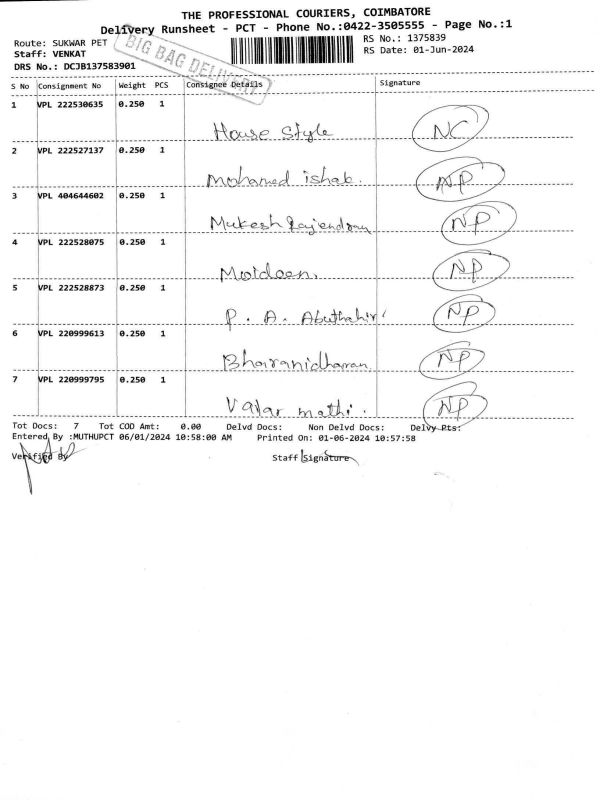 THE PROFESSIONAL COURIERS, COIMBATORE
Delivery Runsheet - PCT - Phone No.:0422-3505555 - Page No.:1
Route: SUKWAR PET
RS No.: 1375839
Staff: VENKAT
RS Date: 01-Jun-2024
DRS No.: DCJB137583901
BIG BAG DELIVERY
S No Consignment No Weight PCS Consignee Details Signature
1 VPL 222530635 0.250 1
House Style NC
2 VPL 222527137 0.250 1
Mohamed ishak. NP
3 VPL 404644602 0.250 1
Mukesh Rajendran NP
4 VPL 222528075 0.250 1
Moideen. NP
5 VPL 222528873 0.250 1
P. A. Abuthahir NP
6 VPL 220999613 0.250 1
Bharanidharan NP
7 VPL 220999795 0.250 1
Valar mathi. NP
Tot Docs: 7 Tot COD Amt: 0.00 Delvd Docs: Non Delvd Docs: Delvy Pts:
Entered By :MUTHUPCT 06/01/2024 10:58:00 AM Printed On: 01-06-2024 10:57:58
Verified By Staff Signature